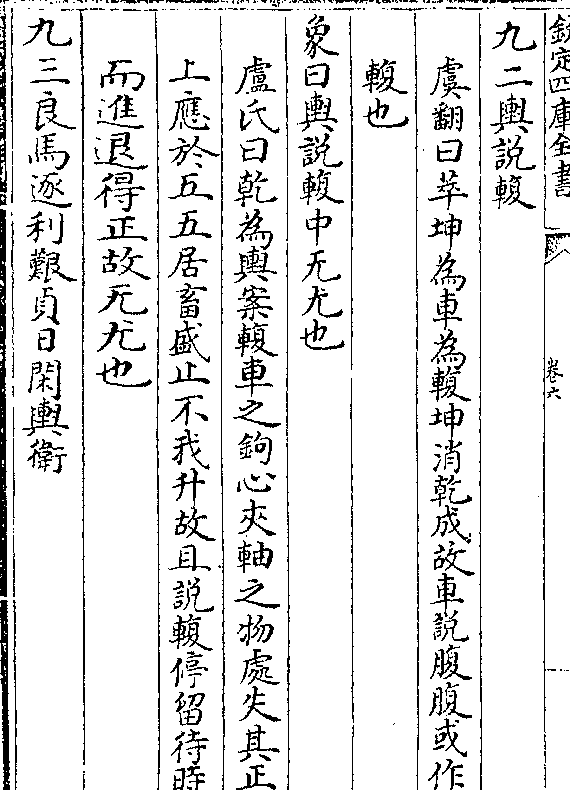 欽定四庫全書
卷六
九二輿説輹
虞翻曰萃坤為車為輹坤消乾成故車説腹腹或作
輹也
象曰輿説輹中无尤也
盧氏曰乾為輿案輹車之鉤心夾軸之物處失其正
上應於五五居畜盛止不我升故且説輹停留待時
而進退得正故无尤也
九三良馬逐利艱貞日閑輿衛